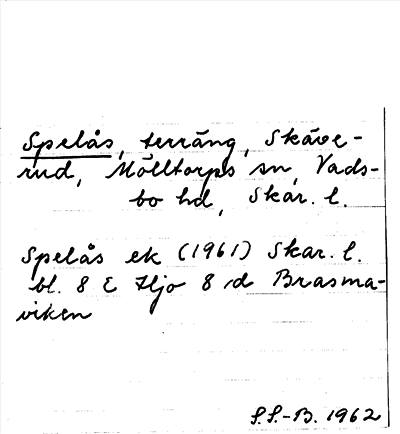 Spelås, terräng, Skäve-
rud, Mölltorps sn, Vads-
bo hd, Skar. l.
Spelås ek (1961) Skar. l.
bl. 8 E Hjo 8 d Brasma-
viken
S.S.-B. 1962